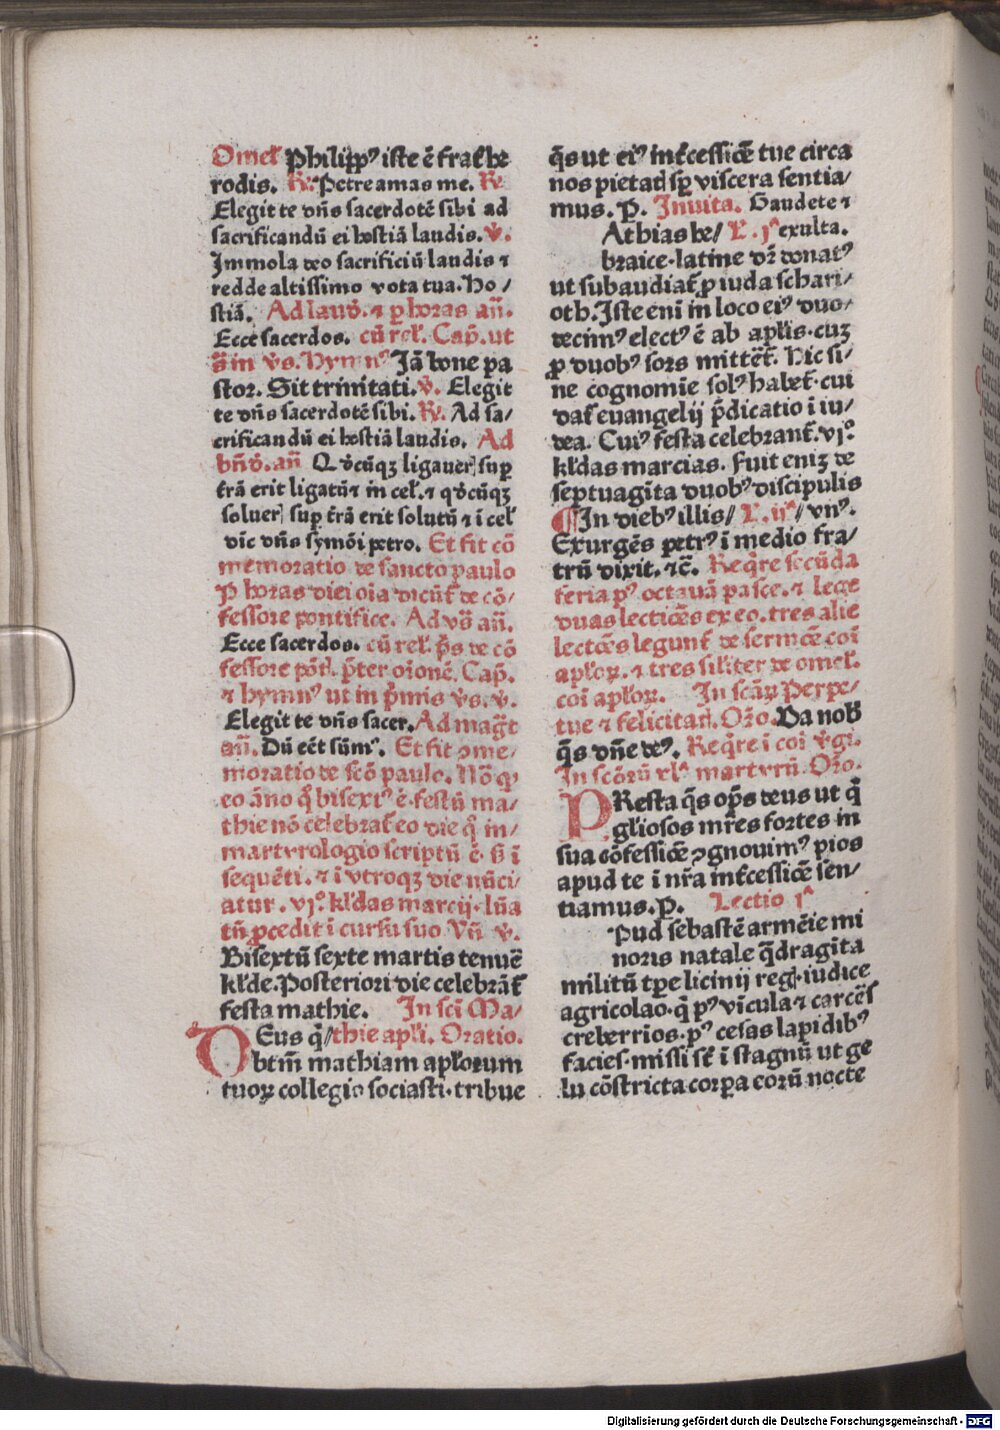 Omel̄ Philipp⁹ iste ē frat̄ he
rodis. ℟. Petre amas me. ℟
Elegit te dn̄s sacerdotē sibi ad
sacrificandū ei hostiā laudis. ℣.
Immola deo sacrificiū laudis ⁊
redde altissimo vota tua. Ho/
stiā. Ad laud̄. ⁊ ꝑ horas an̄.
Ecce sacerdos. cū rel̄. Cap̄. ut
s̄ in v̄s. Hymn⁹ Jā bone pa
stor. Sit trinitati. ℣. Elegit
te dn̄s sacerdotē sibi. ℟. Ad sa/
crificandū ei hostiā laudis. Ad
bn̄d̄. an̄ Qd̄cūqꝫ ligauer̄ sup
t̄rā erit ligatū ⁊ in cel̄. ⁊ qd̄cūqꝫ
soluer̄ sup t̄rā erit solutū ⁊ i cel̄
dīc dn̄s symōi petro. Et fit cō
memoratio de sancto paulo
P horas diei oīa dicūt̄ de cō/
fessore pontifice. Ad vs̄ an̄.
Ecce sacerdos. cū rel̄. p̄s de cō
fessore pōt̄. p̄ter oīonē. Cap̄.
⁊ hymn⁹ ut in p̄mis v̄s. ℣.
Elegit te dn̄s sacer. Ad maḡt
an̄. Dū eēt sūm⁹. Et fit ↄme/
moratio de scō paulo. Nō qͥ
eo āno q̄ bisext⁹ ē festū ma/
thie nō celebrat̄ eo die q̄ in/
martyrologio scriptū ē. s̄ ī
sequēti. ⁊ i vtroqꝫ die nūci/
atur. vj⁰ kl̄das marcij. lūa
tn̄ ꝓcedit i cursu suo. Vn̄ ℣.
Bisextū sexte martis tenuē
kl̄de. Posteriori die celebrāt̄
festa mathie. In scī Ma/
DEus q̄/thie apl̄i. Oratio.
btm̄ mathiam apl̄orum
tuoꝝ collegio sociasti. tribue
q̄s ut ei⁹ int̄cessiōe tue circa
nos pietat̄ sꝑ viscera sentia/
mus. P. Inuita. Gaudete ⁊
Athias he/ L. jᵃ exulta.
braice. latine dr̄ donat⁹
ut subaudiat̄ ꝓ iuda schari/
oth. Iste eni in loco ei⁹ duo/
decim⁹ elect⁹ ē ab apl̄is. cuꝫ
ꝓ duob⁹ sors mittēt̄. Hic si/
ne cognomīe sol⁹ habet̄. cui
dat̄ euangelij p̄dicatio i iu/
dea. Cui⁹ festa celebrant̄. vj⁰
kl̄das marcias. Fuit enīꝫ de
septuagīta duob⁹ discipulis
¶ In dieb⁹ illis/ L. ijᵃ/ vn⁹.
Exurgēs petr⁹ i medio fra/
trū dixit. ⁊c̄. Req̄re secūda
feria p⁹ octauā pasce. ⁊ lege
duas lectiōes ex eo. tres alie
lectōes legunt̄ de sermōe coī
apl̄oꝝ. ⁊ tres sil̄iter de omel̄.
coī apl̄oꝝ. In scāꝝ Perpe/
tue ⁊ felicitat̄. Or̄o. Da nob̄
q̄s dn̄e de⁹. Req̄re i coī v̄gi.
In scōrū xl̄ᵃ martyrū. Or̄o.
PResta q̄s op̄s deus ut q̄
gl̄iosos mr̄es fortes in
sua cōfessiōe ↄgnouim⁹ pios
apud te i nr̄a int̄cessiōe sen/
tiamus. P. Lectio jᵃ
Pud sebastē armēie mi
noris natale q̄dragīta
militū tp̄e licinij reḡ. iudice
agricolao. q̄ p⁹ vīcula ⁊ carcēs̄
creberrios. p⁹ cesas lapidib⁹
facies. missi st̄ i stagnū ut ge
lu cōstricta corꝑa eorū nocte
Digitalisierung gefördert durch die Deutsche Forschungsgemeinschaft - DFG